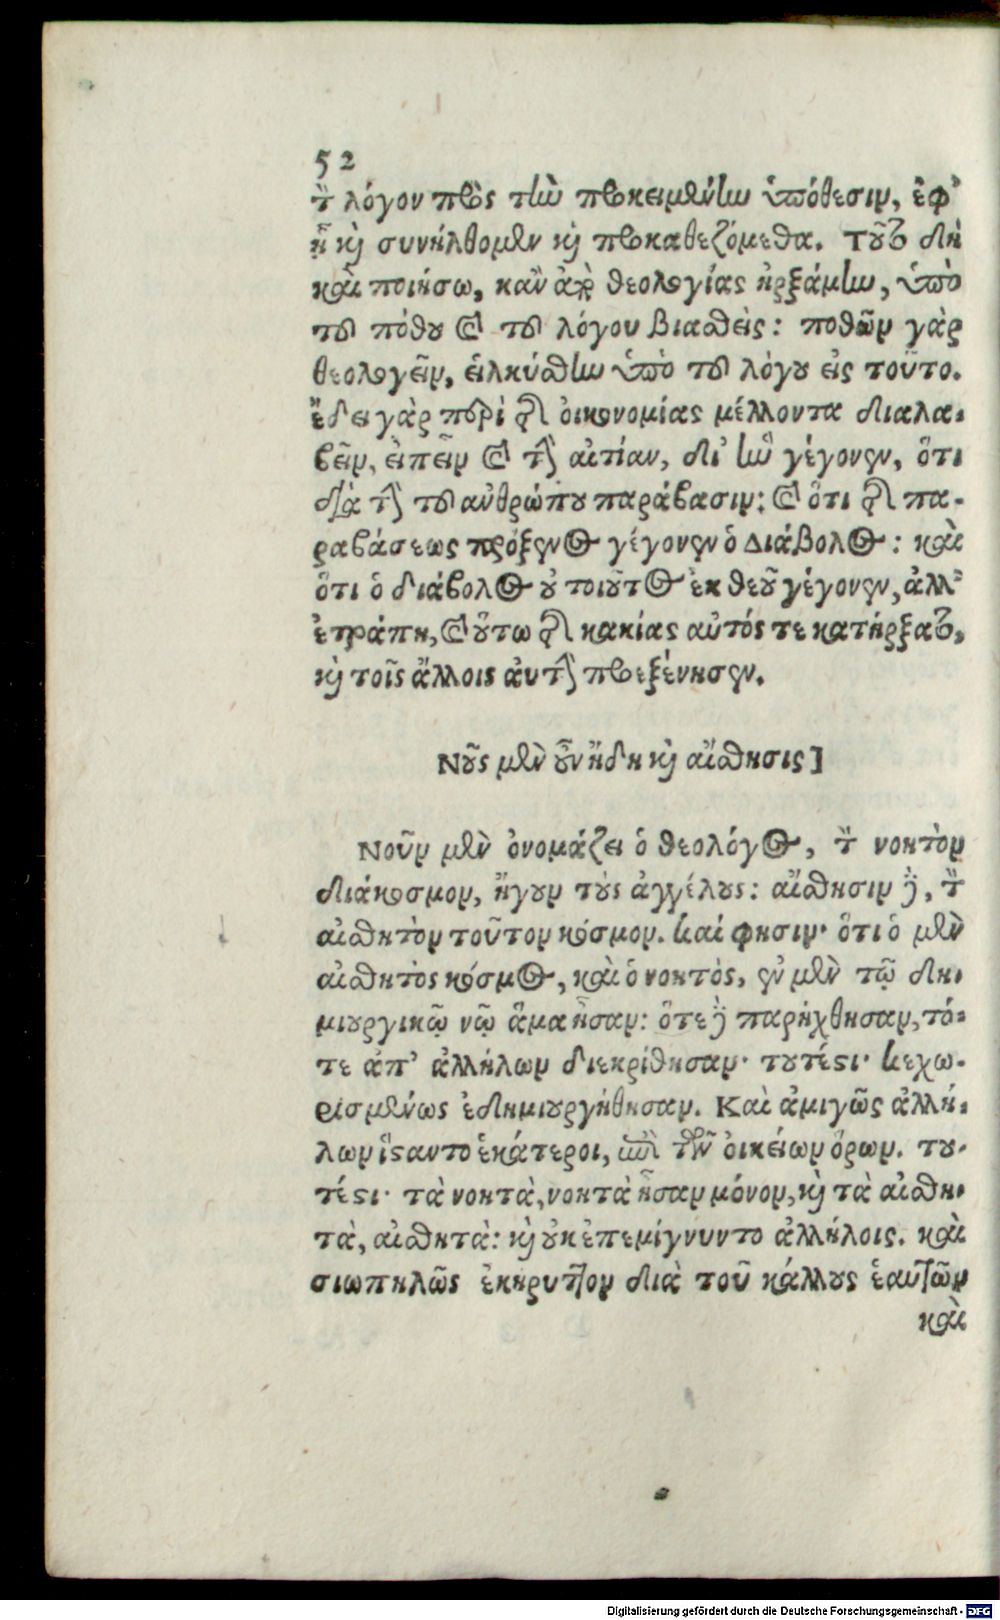 52
τὸν λόγον πρὸς τὴν προκειμένην ὑπόθεσιν, ἐφ᾽
ᾗ καὶ συνήλθομεν καὶ προκαθεζόμεθα. Τοῦτο δὴ
καὶ ποιήσω, κἂν ἀπὸ θεολογίας ἠρξάμην, ὑπὸ
τοῦ πόθου καὶ τοῦ λόγου βιασθεὶς: ποθῶν γὰρ
θεολογεῖν, εἱλκύσθην ὑπὸ τοῦ λόγου εἰς τοῦτο.
ἔδει γὰρ περὶ τῆς οἰκονομίας μέλλοντα διαλα-
βεῖν, εἰπεῖν καὶ τὴν αἰτίαν, δι᾽ ἣν γέγονεν, ὅτι
διὰ τὴν τοῦ ἀνθρώπου παράβασιν: καὶ ὅτι τῆς πα-
ραβάσεως πρόξενος γέγονεν ὁ Διάβολος: καὶ
ὅτι ὁ διάβολος οὐ τοιοῦτος ἐκ θεοῦ γέγονεν, ἀλλ᾽
ἐτράπη, καὶ οὕτω τῆς κακίας αὐτός τε κατήρξατο,
καὶ τοῖς ἄλλοις αὐτὴν προεξένησεν.
Νοῦς μὲν οὖν ἤδη καὶ αἴσθησις]
Νοῦν μὲν ὀνομάζει ὁ θεολόγος, τὸν νοητὸν
διάκοσμον, ἤγουν τοὺς ἀγγέλους: αἴσθησιν δὲ, τὸν
αἰσθητὸν τοῦτον κόσμον. καί φησιν· ὅτι ὁ μὲν
αἰσθητὸς κόσμος, καὶ ὁ νοητὸς, ἐν μὲν τῷ δη-
μιουργικῷ νῷ ἅμα ἦσαν: ὅτε δὲ παρήχθησαν, τό-
τε ἀπ᾽ ἀλλήλων διεκρίθησαν· τουτέστι· κεχω-
ρισμένως ἐδημιουργήθησαν. Καὶ ἀμιγῶς ἀλλή-
λων ἵσταντο ἑκάτεροι, ἐπὶ τῶν οἰκείων ὅρων. του-
τέστι· τὰ νοητὰ, νοητὰ ἦσαν μόνον, καὶ τὰ αἰσθη-
τὰ, αἰσθητὰ: καὶ οὐκ ἐπεμίγνυντο ἀλλήλοις. καὶ
σιωπηλῶς ἐκήρυττον διὰ τοῦ κάλλους ἑαυτῶν
καὶ
Digitalisierung gefördert durch die Deutsche Forschungsgemeinschaft - DFG